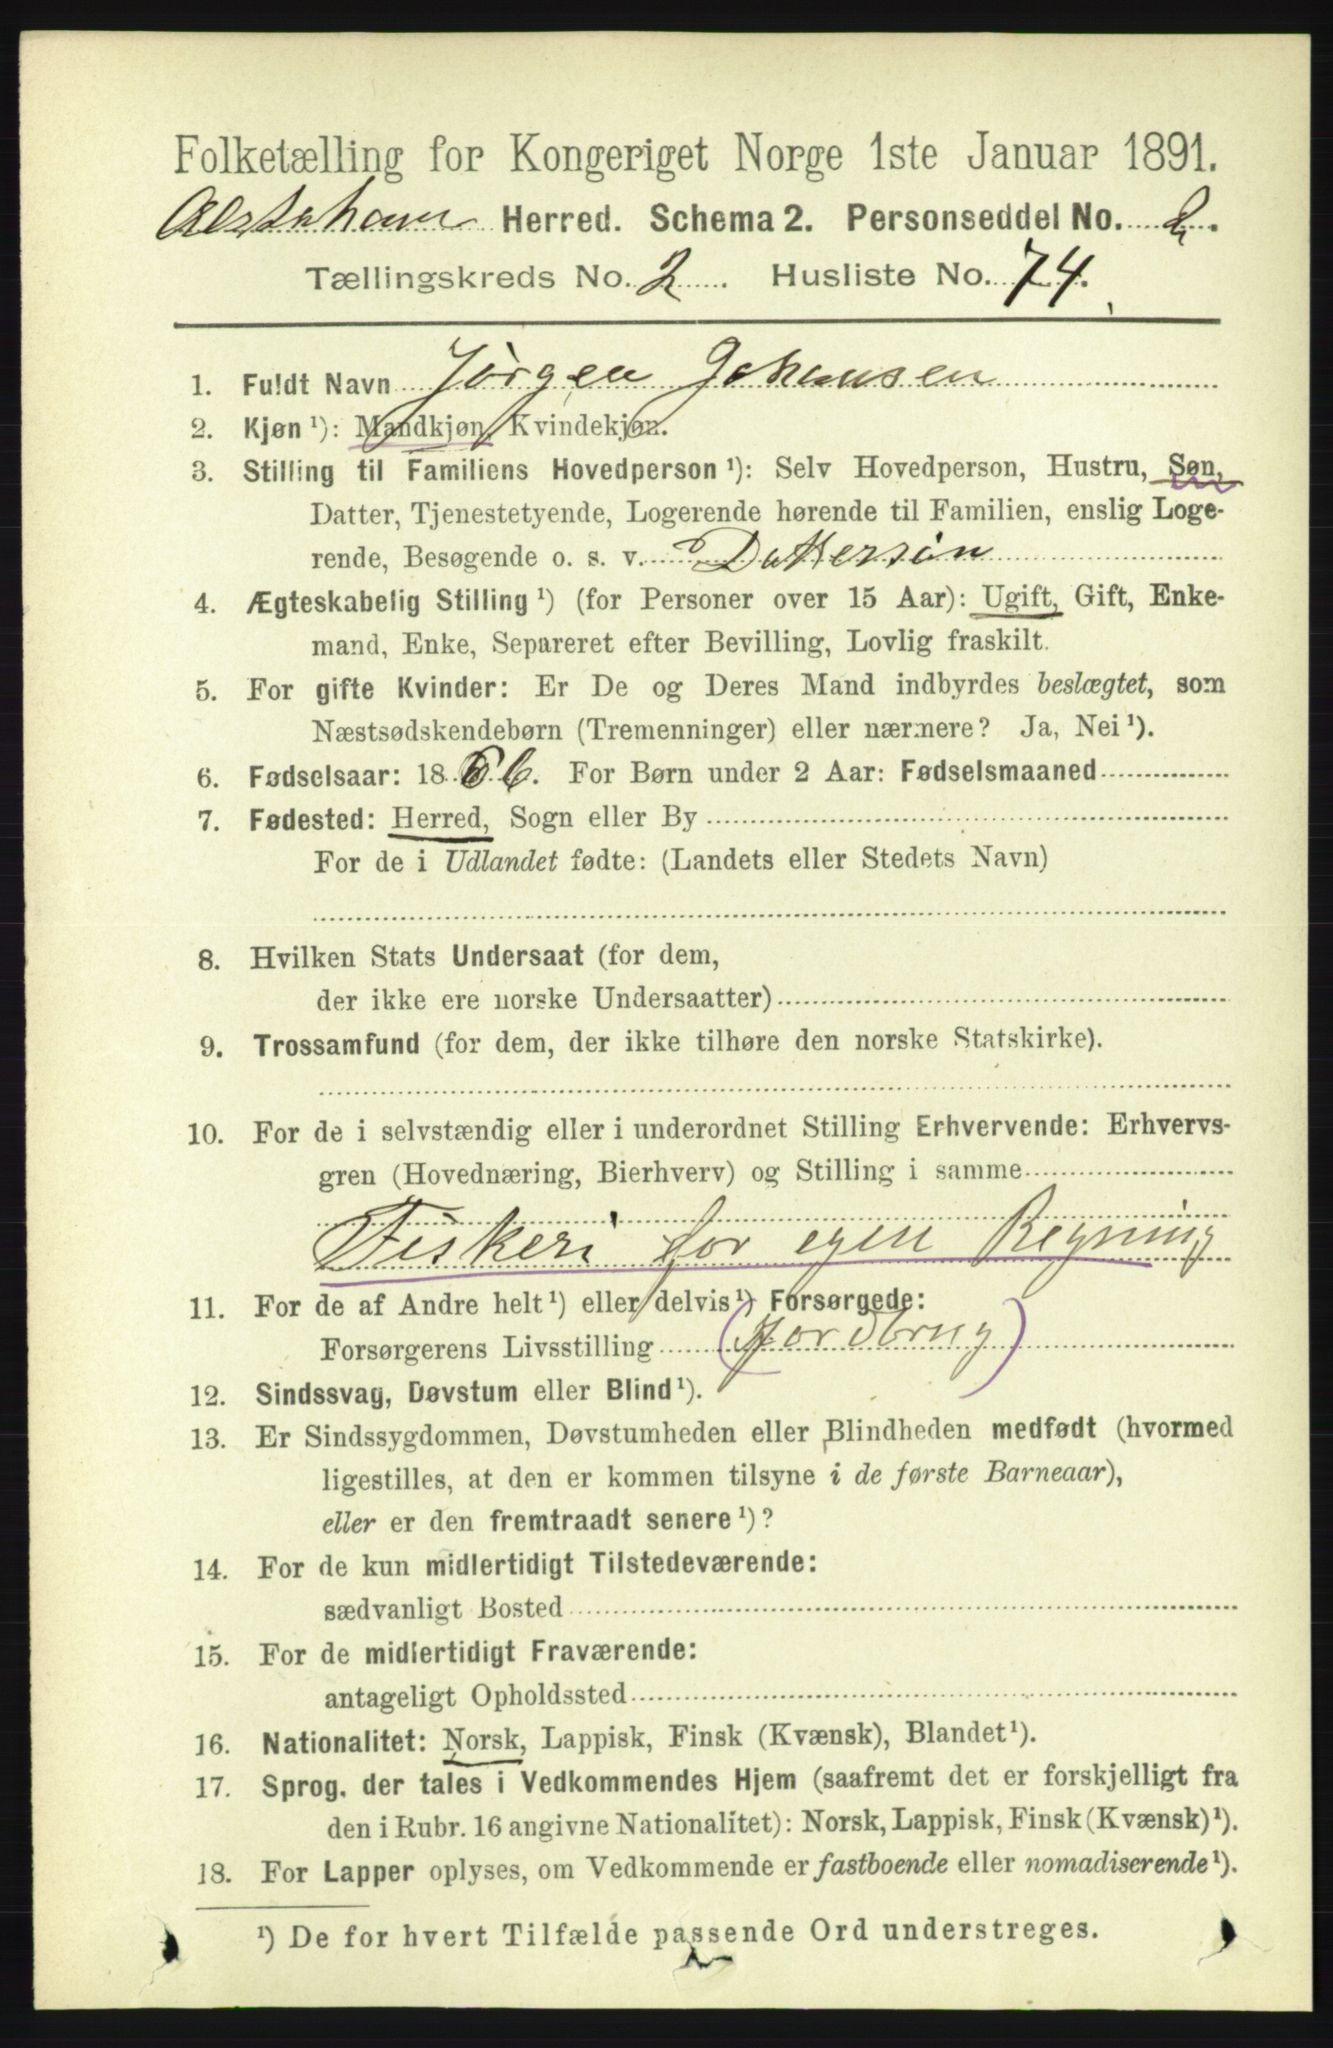 Folketælling for Kongeriget Norge 1ste Januar 1891.
Alstahoug Herred. Schema 2. Personseddel No. 2.
Tællingskreds No. 2. Husliste No. 74.
1. Fuldt Navn Jörgen Johansen
2. Kjøn ¹): Mandkjøn, Kvindekjøn.
3. Stilling til Familiens Hovedperson ¹): Selv Hovedperson, Hustru, Søn,
Datter, Tjenestetyende, Logerende hørende til Familien, enslig Loge-
rende, Besøgende o. s. v. Dattersön
4. Ægteskabelig Stilling ¹) (for Personer over 15 Aar): Ugift, Gift, Enke-
mand, Enke, Separeret efter Bevilling, Lovlig fraskilt.
5. For gifte Kvinder: Er De og Deres Mand indbyrdes beslægtet, som
Næstsødskendebørn (Tremenninger) eller nærmere? Ja, Nei ¹).
6. Fødselsaar: 1866. For Børn under 2 Aar: Fødselsmaaned
7. Fødested: Herred, Sogn eller By
For de i Udlandet fødte: (Landets eller Stedets Navn)
8. Hvilken Stats Undersaat (for dem,
der ikke ere norske Undersaatter)
9. Trossamfund (for dem, der ikke tilhøre den norske Statskirke).
10. For de i selvstændig eller i underordnet Stilling Erhvervende: Erhvervs-
gren (Hovednæring, Bierhverv) og Stilling i samme
Fiskeri for egen Regning
11. For de af Andre helt ¹) eller delvis ¹) Forsørgede:
Forsørgerens Livsstilling (Jordbrug)
12. Sindssvag, Døvstum eller Blind ¹).
13. Er Sindssygdommen, Døvstumheden eller Blindheden medfødt (hvormed
ligestilles, at den er kommen tilsyne i de første Barneaar),
eller er den fremtraadt senere ¹)?
14. For de kun midlertidigt Tilstedeværende:
sædvanligt Bosted
15. For de midlertidigt Fraværende:
antageligt Opholdssted
16. Nationalitet: Norsk, Lappisk, Finsk (Kvænsk), Blandet ¹).
17. Sprog, der tales i Vedkommendes Hjem (saafremt det er forskjelligt fra
den i Rubr. 16 angivne Nationalitet): Norsk, Lappisk, Finsk (Kvænsk) ¹).
18. For Lapper oplyses, om Vedkommende er fastboende eller nomadiserende ¹).
¹) De for hvert Tilfælde passende Ord understreges.